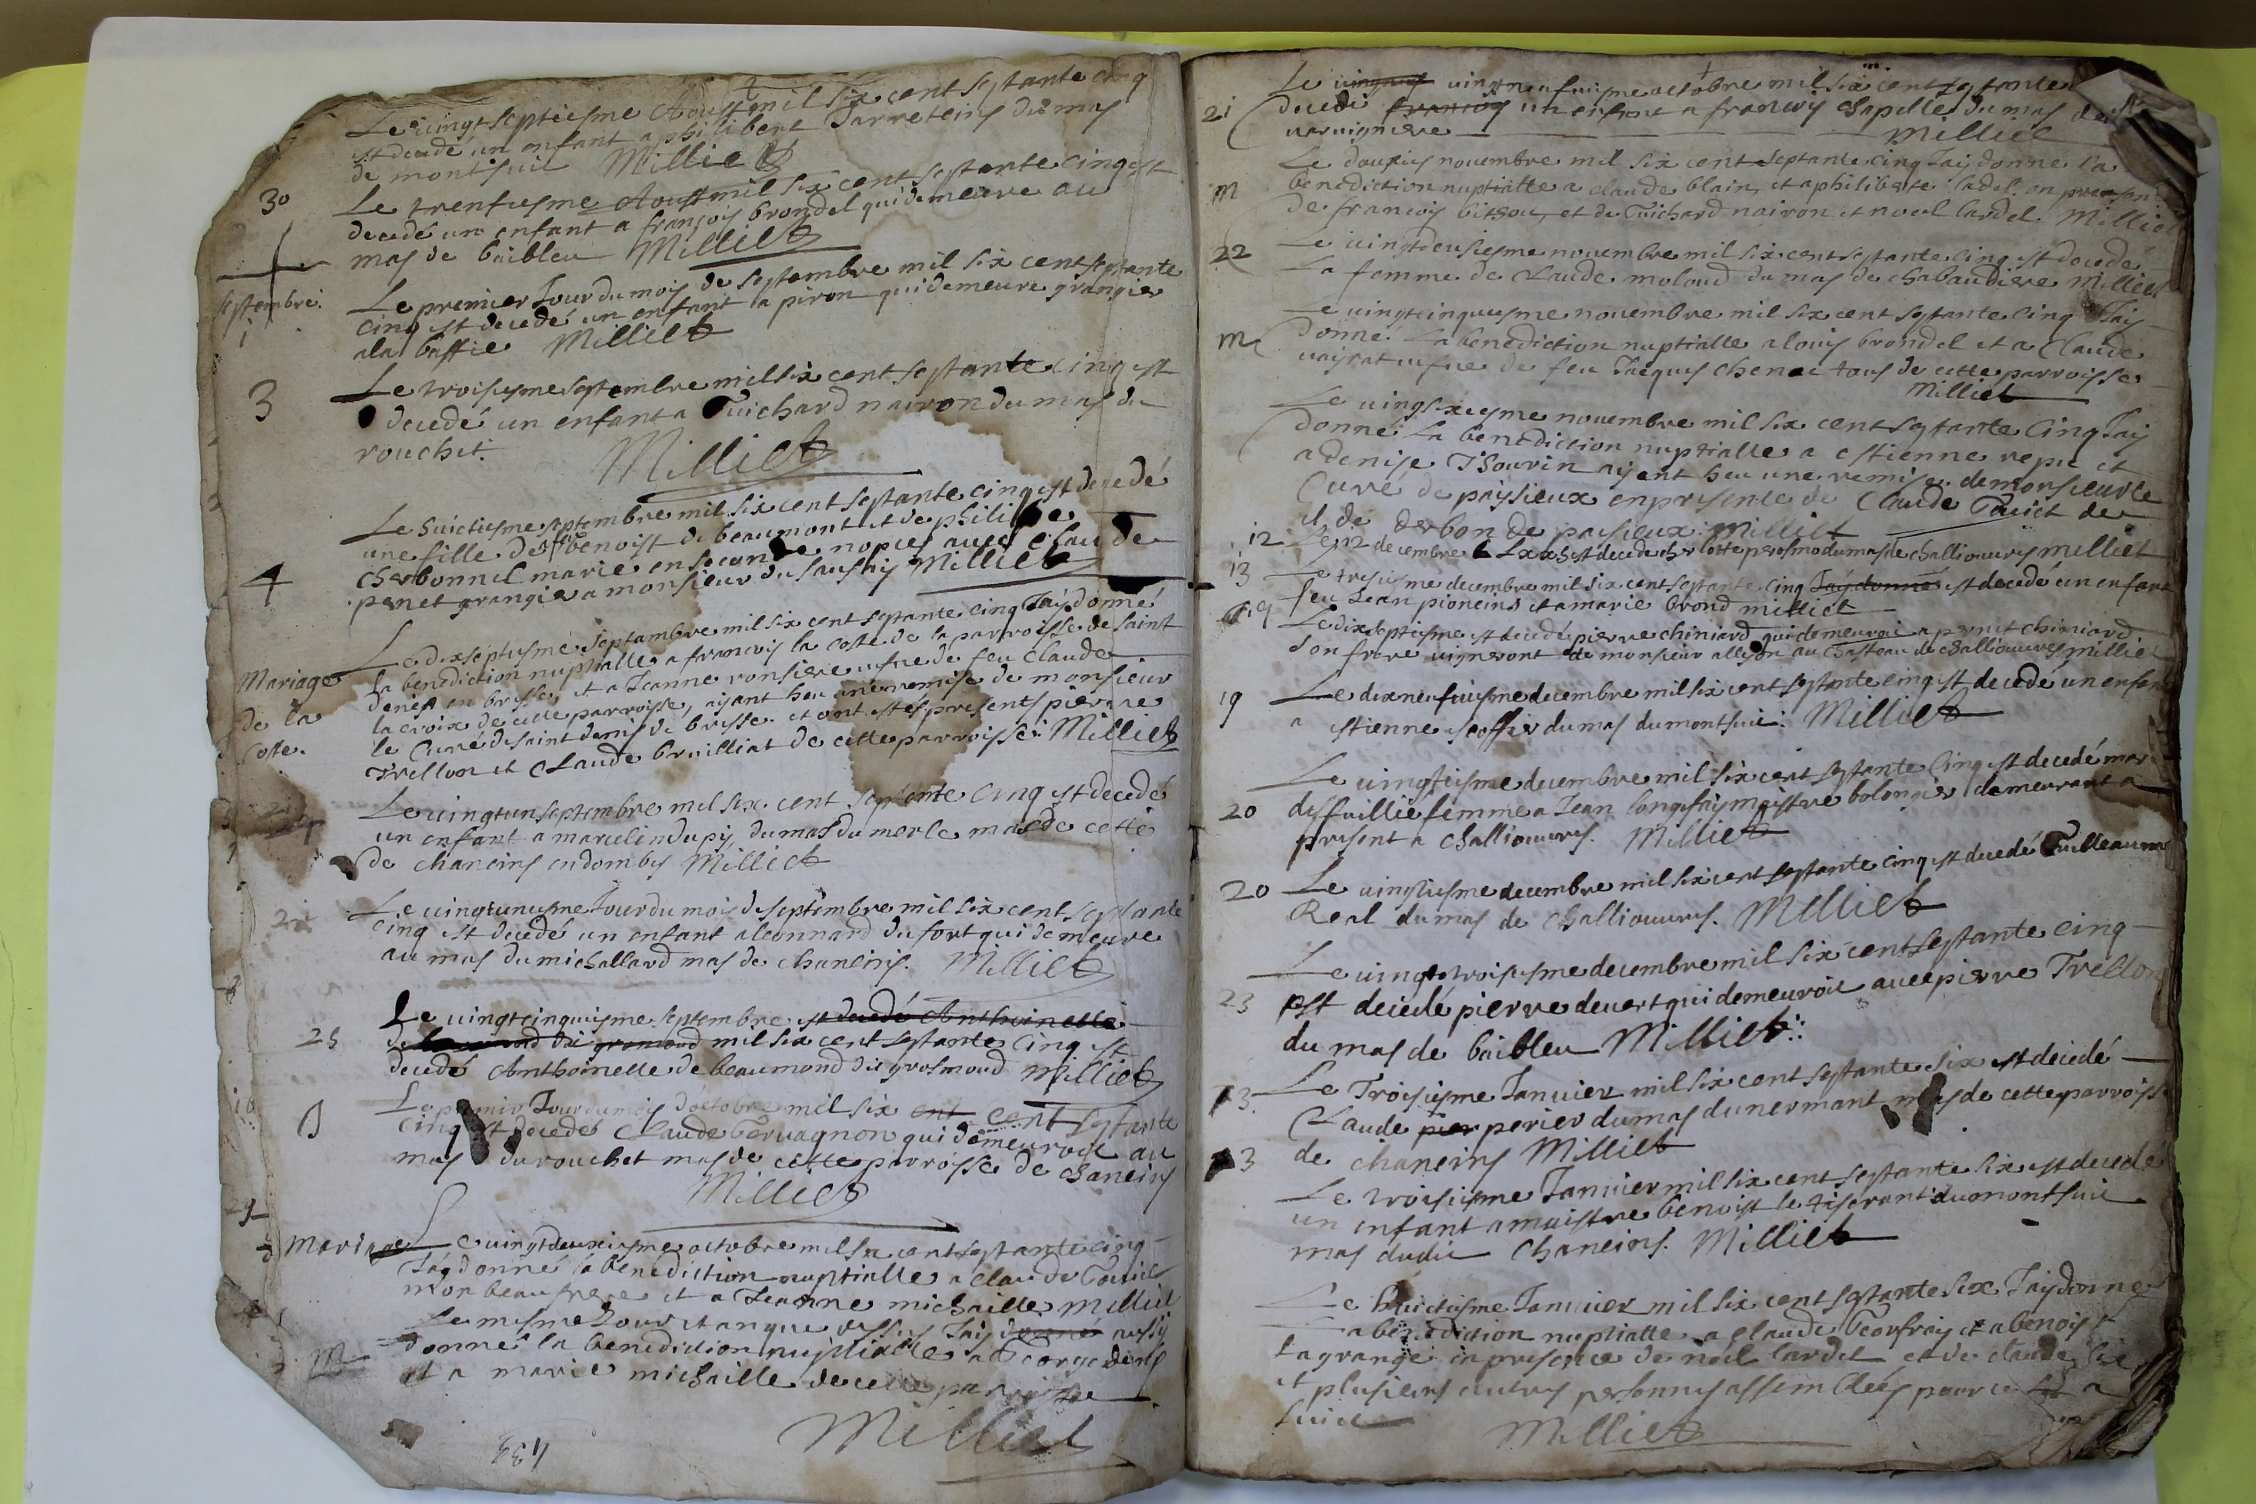 Le vingt septiesme Aoust mil six cent septante cinq
est decedé un enfant a philibert Jarreteins du mas
de montsuil Milliet
30
Le trentiesme Aoust mil six cent septante cinq est
decedé un enfant a françois brondel qui demeure au
mas de baibleu Milliet
septembre
1
Le premier Jour du mois de septembre mil six cent septante
cinq est decedé un enfant a piron qui demeure grangier
a la baffie Milliet
3
Le troisiesme septembre mil six cent septante cinq est
decedé un enfant a Guichard nairon du mas du
rouchet. Milliet
4
Le huictiesme septembre mil six cent septante cinq est decedé
une fille de benoist de beaumont et de
cherbonnel marie en seconde nopces avec Claude
penet grangier a monsieur du sausay Milliet
Mariage
de la
Coste.
Le dixseptiesme septambre mil six cent septante cinq Jay donné
la benediction nuptialle a francois la coste de la parroisse de saint
denis en bresse, et a Jeanne ronsiere vefve de feu Claude
la croix de cette parroisse, aiyant heu une remise de monsieur
le Curé de saint denis de bresse et ont estes presents pierre
Trellon et Claude brailliat de cette parroisse Milliet
Le vingtun septembre mil six cent septante cinq est decedé
un enfant a marcelin dupiy du mas du merle mas de cette
de chaneins en dombes Milliet
21
Le vingtuniesme Jour du mois de septembre mil six cent septante
cinq est decedé un enfant a leonnard du fort qui demeure
au mas du michallard mas de chaneins. Milliet
25
Le vingtcinquiesme septembre est decedé Anthoinette
mil six cent septante cinq est
decedé Anthoinette de beaumond dit grosmond Milliet
Le premier Jour du mois doctobre mil six cent septante
cinq est decedé Claude Gervagnon qui demeuroit au
mas du rouchet mas de cette parroisse de chaneins
Milliet
Mariage
Le vingtdeuxiesme octobre mil six cent septante cinq
Jay donné la benediction nuptialle a Claude Gouiet
mon beau frere et a Jeanne michaille Milliet
m
Le mesme Jour et an que dessus Jay donné aussy
donné la benediction nuptialle a George denis
et a marie michaille de cette parroisse
Milliet
Le vingneufviesme octobre mil six cent septante
21
decedé francois un enfant a francois Chapelle du mas de
varvigniere Milliet
m
Le douzies novembre mil six cent septante cinq Jay donné la
benediction nuptialle a claude blain et a philiberte lardet en presen
de francois bitsou, et de Guichard nairon et noel lardet Milliet
22
Le vingtdeusiesme novembre mil six cent septante cinq est decedé
La femme de Claude moloud du mas de chabaudiere Milliet
m
Le vingtcinquiesme novembre mil six cent septante cinq Jay
donné La benediction nuptialle a louis brondel et a Claude
vairat vefve de feu Jacques chenac tous de cette parroisse
Milliet
Le vingsixiesme novembre mil six cent septante cinq Jay
donné La benediction nuptialle a estienne repic et
a denise Tsourin aiyent heu une remise de monsieur le
Curé de paisieux en presente de Claude Gouiet de
et de derbon de paisieux Milliet
12
Le 12 decembre est decede charlotte peromo du mas de challiouvres Milliet
13
Le tresiesme decembre mil six cent septante cinq Jay donné est decedé un enfant
feu Jean pioneins et a marie brond Milliet
Le dixseptiesme est decedé pierre chiniard qui demeuroit a pernet chiniard
son frere vigneront de monsieur alleson au chasteau de challiouvres Milliet
19
Le dixneufviesme decembre mil six cent septante cinq est decedé un enfant
a estienne scoffier du mas du montsuil. Milliet
20
Le vingtiesme decembre mil six cent septante cinq est decedé mar
desfaillie femme a Jean longefay maistre bolongier demeurant a
present a challiouvres. Milliet
20
Le vingtiesme decembre mil six cent septante cinq est decedé Guilleaume
Real du mas de challiouvres. Milliet
23
Le vingt troisiesme decembre mil six cent septante cinq
est decedé pierre devert qui demeuroit avec pierre Trellon
du mas de baibleu Milliet
3
Le Troisiesme Janvier mil six cent septante six est decedé
Claude pier perier du mas du nermant mas de cette parroisse
de chaneins Milliet
3
Le troisiesme Janvier mil six cent septante six est decedé
un enfant a maistre benoist le tiserant du montsuil
mas dudit Chaneins. Milliet
Le huictiesme Janvier mil six cent septante six Jay donné
la benediction nuptialle a Claude Geoffray et a benoiste
Lagrange en presence de noel lardet et de claude
et plusieurs autres personnes assemblées pour
Milliet